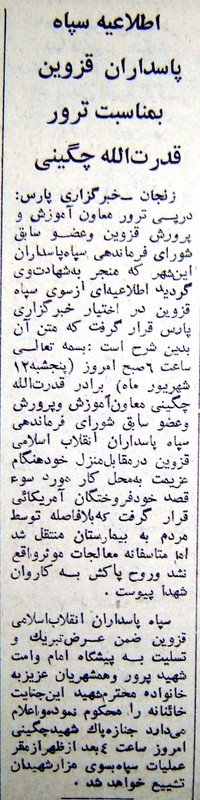 اطلاعیه سپاه
پاسداران قزوین
بمناسبت ترور
قدرت‌الله چگینی
زنجان ـ خبرگزاری پارس:
درپی ترور معاون آموزش و
پرورش قزوین وعضو سابق
شورای فرماندهی سپاه‌پاسداران
این‌شهر که منجر به‌شهادت‌وی
گردید اطلاعیه‌ای ازسوی سپاه
قزوین در اختیار خبرگزاری
پارس قرار گرفت که متن آن
بدین شرح است :بسمه تعالی
ساعت ۶صبح امروز (پنجشبه۱۲
شهریور ماه) برادر قدرت‌الله
چگینی معاون‌آموزش وپرورش
وعضو سابق شورای فرماندهی
سپاه پاسداران انقلاب اسلامی
قزوین درمقابل‌منزل خودهنگام
عزیمت به‌محل کار مورد سوء
قصد خودفروختگان آمریکائی
قرار گرفت که‌بلافاصله توسط
مردم به بیمارستان منتقل شد
اما متاسفانه معالجات موثرواقع
نشد وروح پاکش به کاروان
شهدا پیوست .
سپاه پاسداران انقلاب‌اسلامی
قزوین ضمن عرض‌تبریک و
تسلیت به پیشگاه امام وامت
شهید پرور وهمشهریان عزیزبه
خانواده محترم‌شهید این‌جنایت
خائنانه را محکوم نموده‌واعلام
میدارد جنازه‌پاك شهیدچگینی
امروز ساعت ۴بعد ازظهرازمقر
عملیات سپاه‌بسوی مزارشهیدان
تشییع خواهد شد .